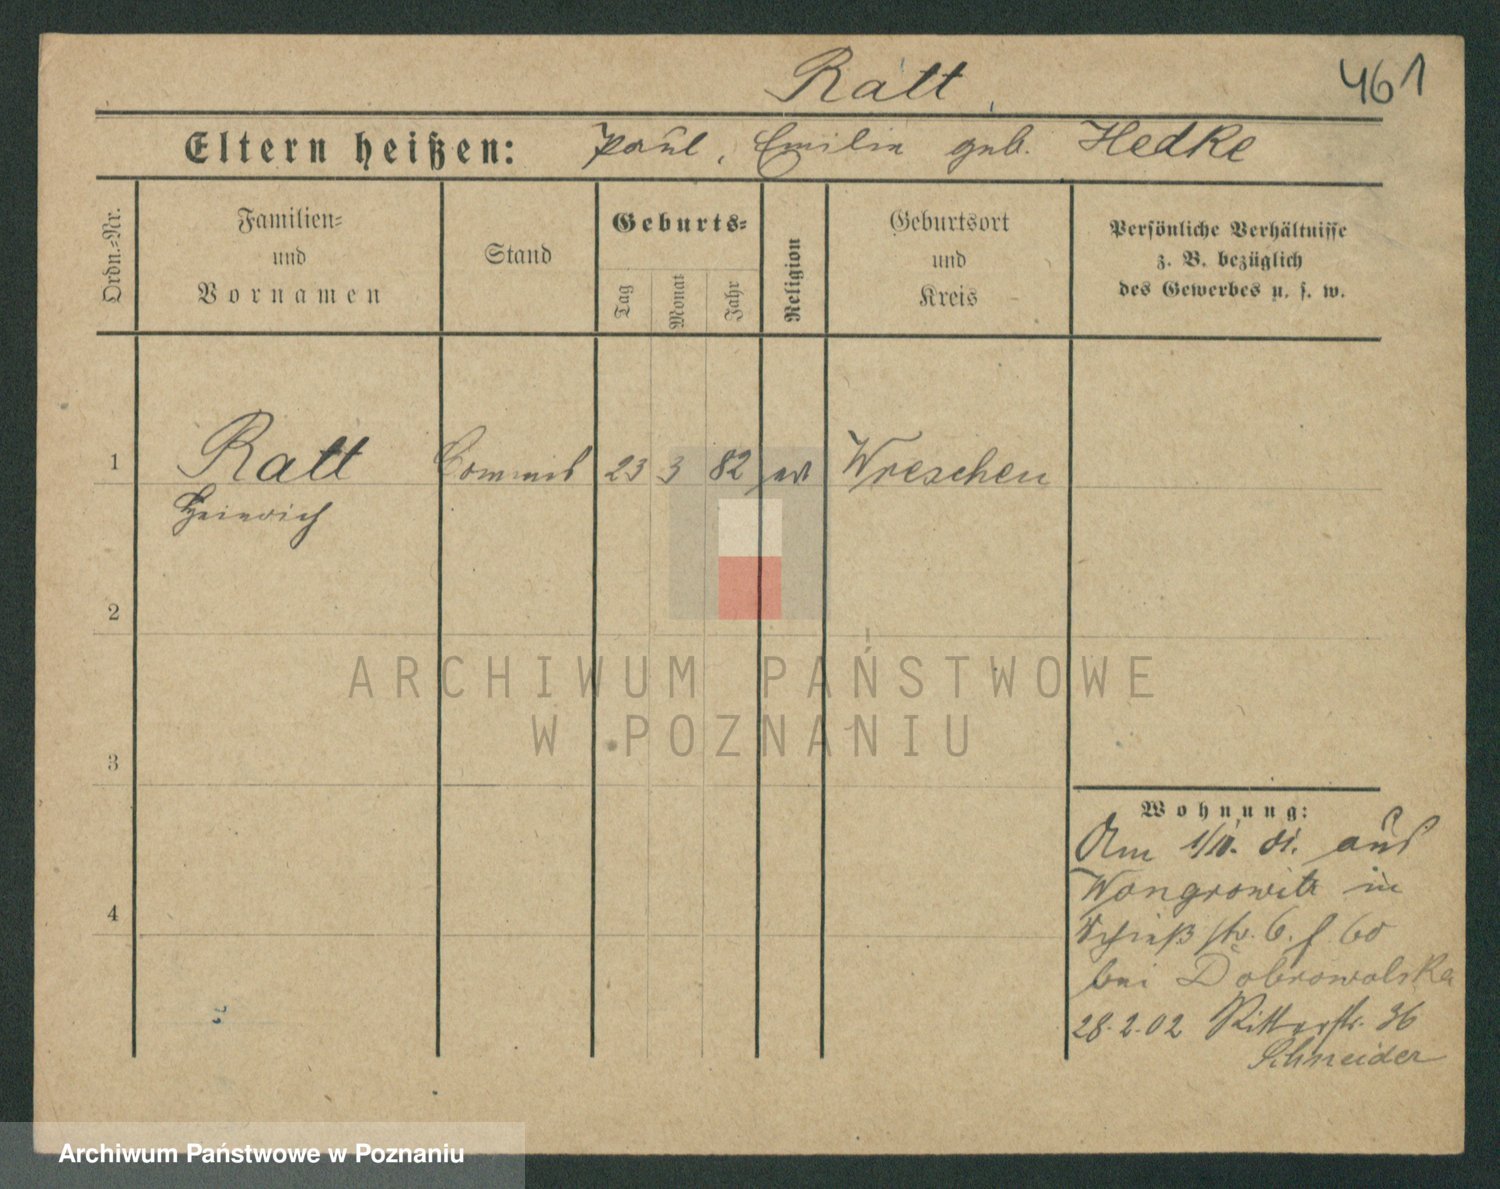 Ratt
461
Eltern heißen: Paul, Emilie geb. Hedke
Ordn.-Nr.
Familien-
und
Vornamen
Stand
Geburts-
Tag
Monat
Jahr
Religion
Geburtsort
und
Kreis
Persönliche Verhältnisse
z. B. bezüglich
des Gewerbes u. s. w.
1 Ratt Commis 23 3 82 ev Wreschen
Heinrich
2
ARCHIWUM PAŃSTWOWE
W POZNANIU
3
Wohnung:
Am 01. aus
Wongrowitz in
Schieß str. 6.
bei Dobrowolska
28.2.02 Ritterstr. 36
Schneider
4
Archiwum Państwowe w Poznaniu